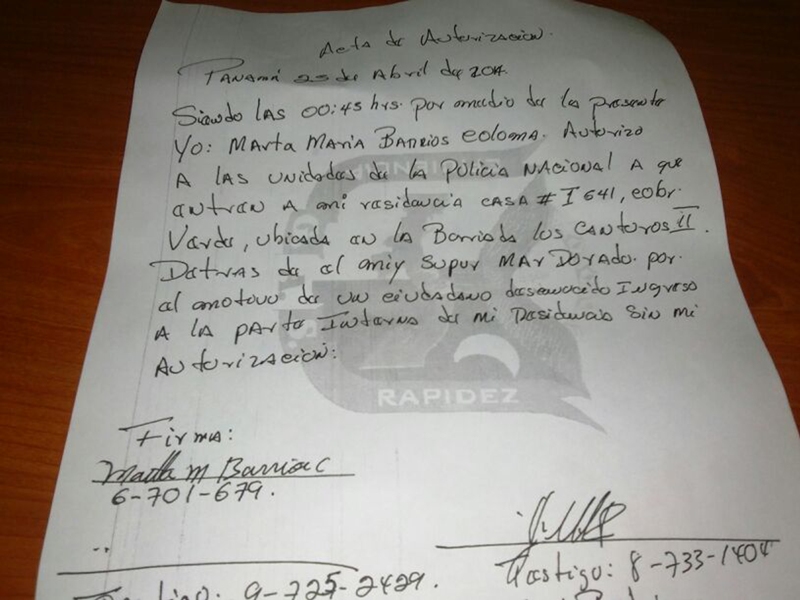 Acta de Autorizacion.
Panamá 25 de Abril de 2014.
Siendo las 00:45 hrs. por medio de la presente
Yo: Marta Maria Barrios Coloma. Autorizo
A las unidades de la Policia Nacional A que
entran A mi residencia casa # I 641, color
Verde, ubicada en la Barriada los Cantoros II.
Detras de el Super Mar Dorado. por
el motovo de un ciudadano desconocido Ingreso
A la parte Interna de mi Residencia sin mi
Autorización:
EFICIENCIA
RAPIDEZ
Firma:
Marta M Barrios C
6-701-679.
Testigo: 8-733-1404
Testigo: 9-725-2429.